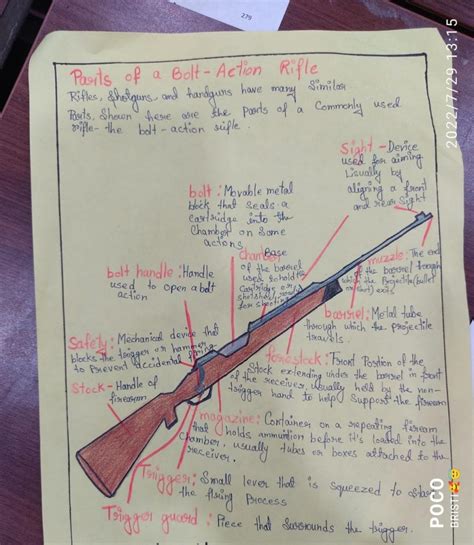 279
2022/7/29 13:15
Parts of a Bolt-Action Rifle
Rifles, Shotguns, and handguns have many similar
Parts. Shown here are the parts of a Commonly used
rifle- the bolt-action rifle.
Sight - Device
used for aiming
Usually by
aligning a front
and rear sight
bolt: Movable metal
block that seals a
cartridge into the
Chamber on some
actions.
Chamber: Base
of the barrel
used to hold the
cartridge or
shotshell
for shooting
bolt handle: Handle
used to open a bolt
action
muzzle: The end
of the barrel trough
which the projectile (bullet
or shot) exits
barrel: Metal tube
through which the projectile
travels.
Safety: Mechanical device that
blocks the trigger or hammer
to prevent accidental firing
Stock - Handle of
firearm
forestock: Front Portion of the
Stock extending under the barrel in front
of the receiver, usually held by the non-
trigger hand to help support the firearm
magazine: Container on a repeating firearm
that holds ammunition before it's loaded into the
chamber. usually tubes or boxes attached to the
receiver.
Trigger: Small lever that is squeezed to start
the firing Process
Trigger guard: Piece that surrounds the trigger.
POCO
BRISTI